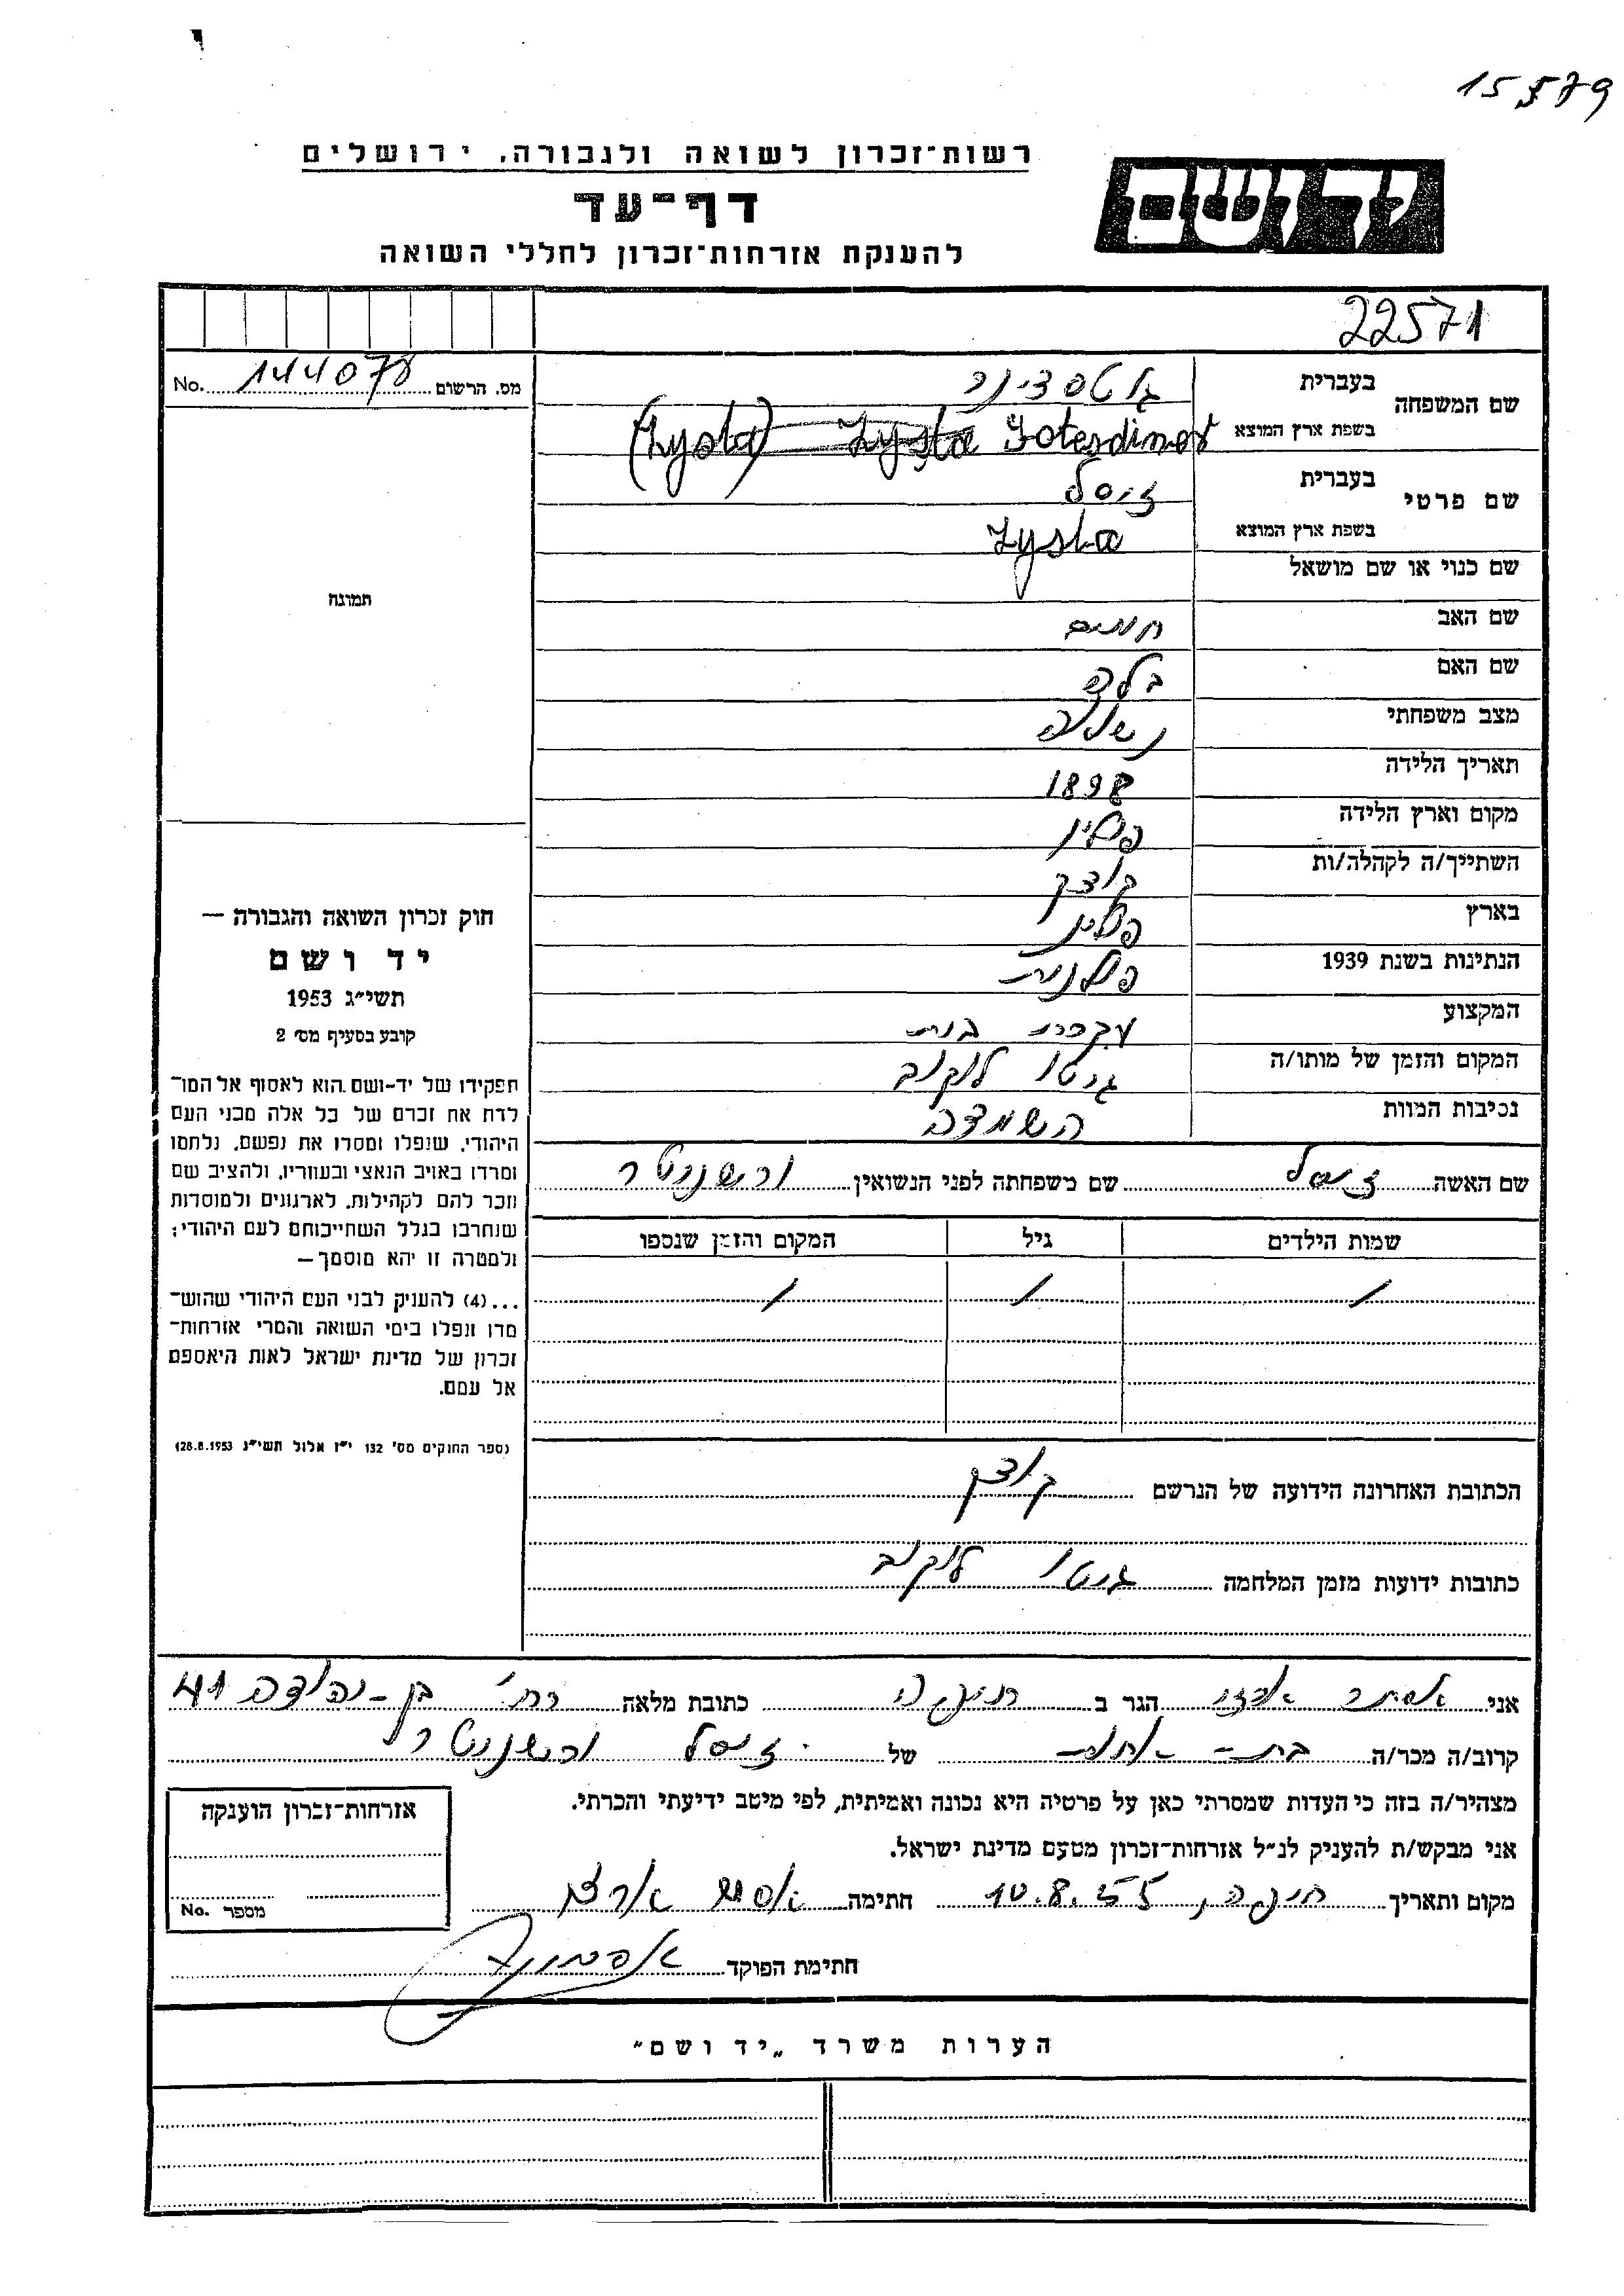 15579
רשות־זכרון לשואה ולגבורה, ירושלים
ידושם
דף־עד
להענקת אזרחות־זכרון לחללי השואה
22571
מס. הרשום 144078 No.
שם המשפחה
בעברית גוטסדינר
בשפת ארץ המוצא Gotesdiner Zysla (Zysla)
שם פרטי
בעברית זיסל
בשפת ארץ המוצא Zysla
שם כנוי או שם מושאל
שם האב חיים
שם האם בלה
מצב משפחתי נשואה
תאריך הלידה 1898
מקום וארץ הלידה פולין
השתייך/ה לקהלה/ות קוצק
בארץ פולין
הנתינות בשנת 1939 פולנית
המקצוע עקרת בית
המקום והזמן של מותו/ה גיטו לוקוב
נסיבות המוות השמדה
תמונה
חוק זכרון השואה והגבורה —
יד ושם
תשי״ג 1953
קובע בסעיף מס׳ 2
תפקידו של יד-ושם הוא לאסוף אל המו־
לדת את זכרם של כל אלה מבני העם
היהודי, שנפלו ומסרו את נפשם, נלחמו
ומרדו באויב הנאצי ובעוזריו, ולהציב שם
וזכר להם לקהילות, לארגונים ולמוסדות
שנחרבו בגלל השתייכותם לעם היהודי;
ולמטרה זו יהא מוסמך —
...(4) להעניק לבני העם היהודי שהוש־
מדו ונפלו בימי השואה והמרי אזרחות־
זכרון של מדינת ישראל לאות היאספם
אל עמם.
(ספר החוקים מס׳ 132 י״ז אלול תשי״ג 28.8.1953)
שם האשה זיסל שם משפחתה לפני הנשואין
שמות הילדים גיל המקום והזמן שנספו
/ / /
הכתובת האחרונה הידועה של הנרשם קוצק
כתובות ידועות מזמן המלחמה גיטו לוקוב
אני אסתר הגר ב חיפה כתובת מלאה רח׳ בן-יהודה 41
קרוב/ה מכר/ה בת-אחות של זיסל
מצהיר/ה בזה כי העדות שמסרתי כאן על פרטיה היא נכונה ואמיתית, לפי מיטב ידיעתי והכרתי.
אני מבקש/ת להעניק לנ״ל אזרחות־זכרון מטעם מדינת ישראל.
מקום ותאריך חיפה, 10.8.55 חתימה אסתר
חתימת הפוקד
אזרחות־זכרון הוענקה
מספר No.
הערות משרד „יד ושם״